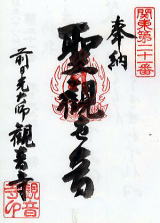 関東第二十番
奉納
聖観世音
観音寺
観音
寺印